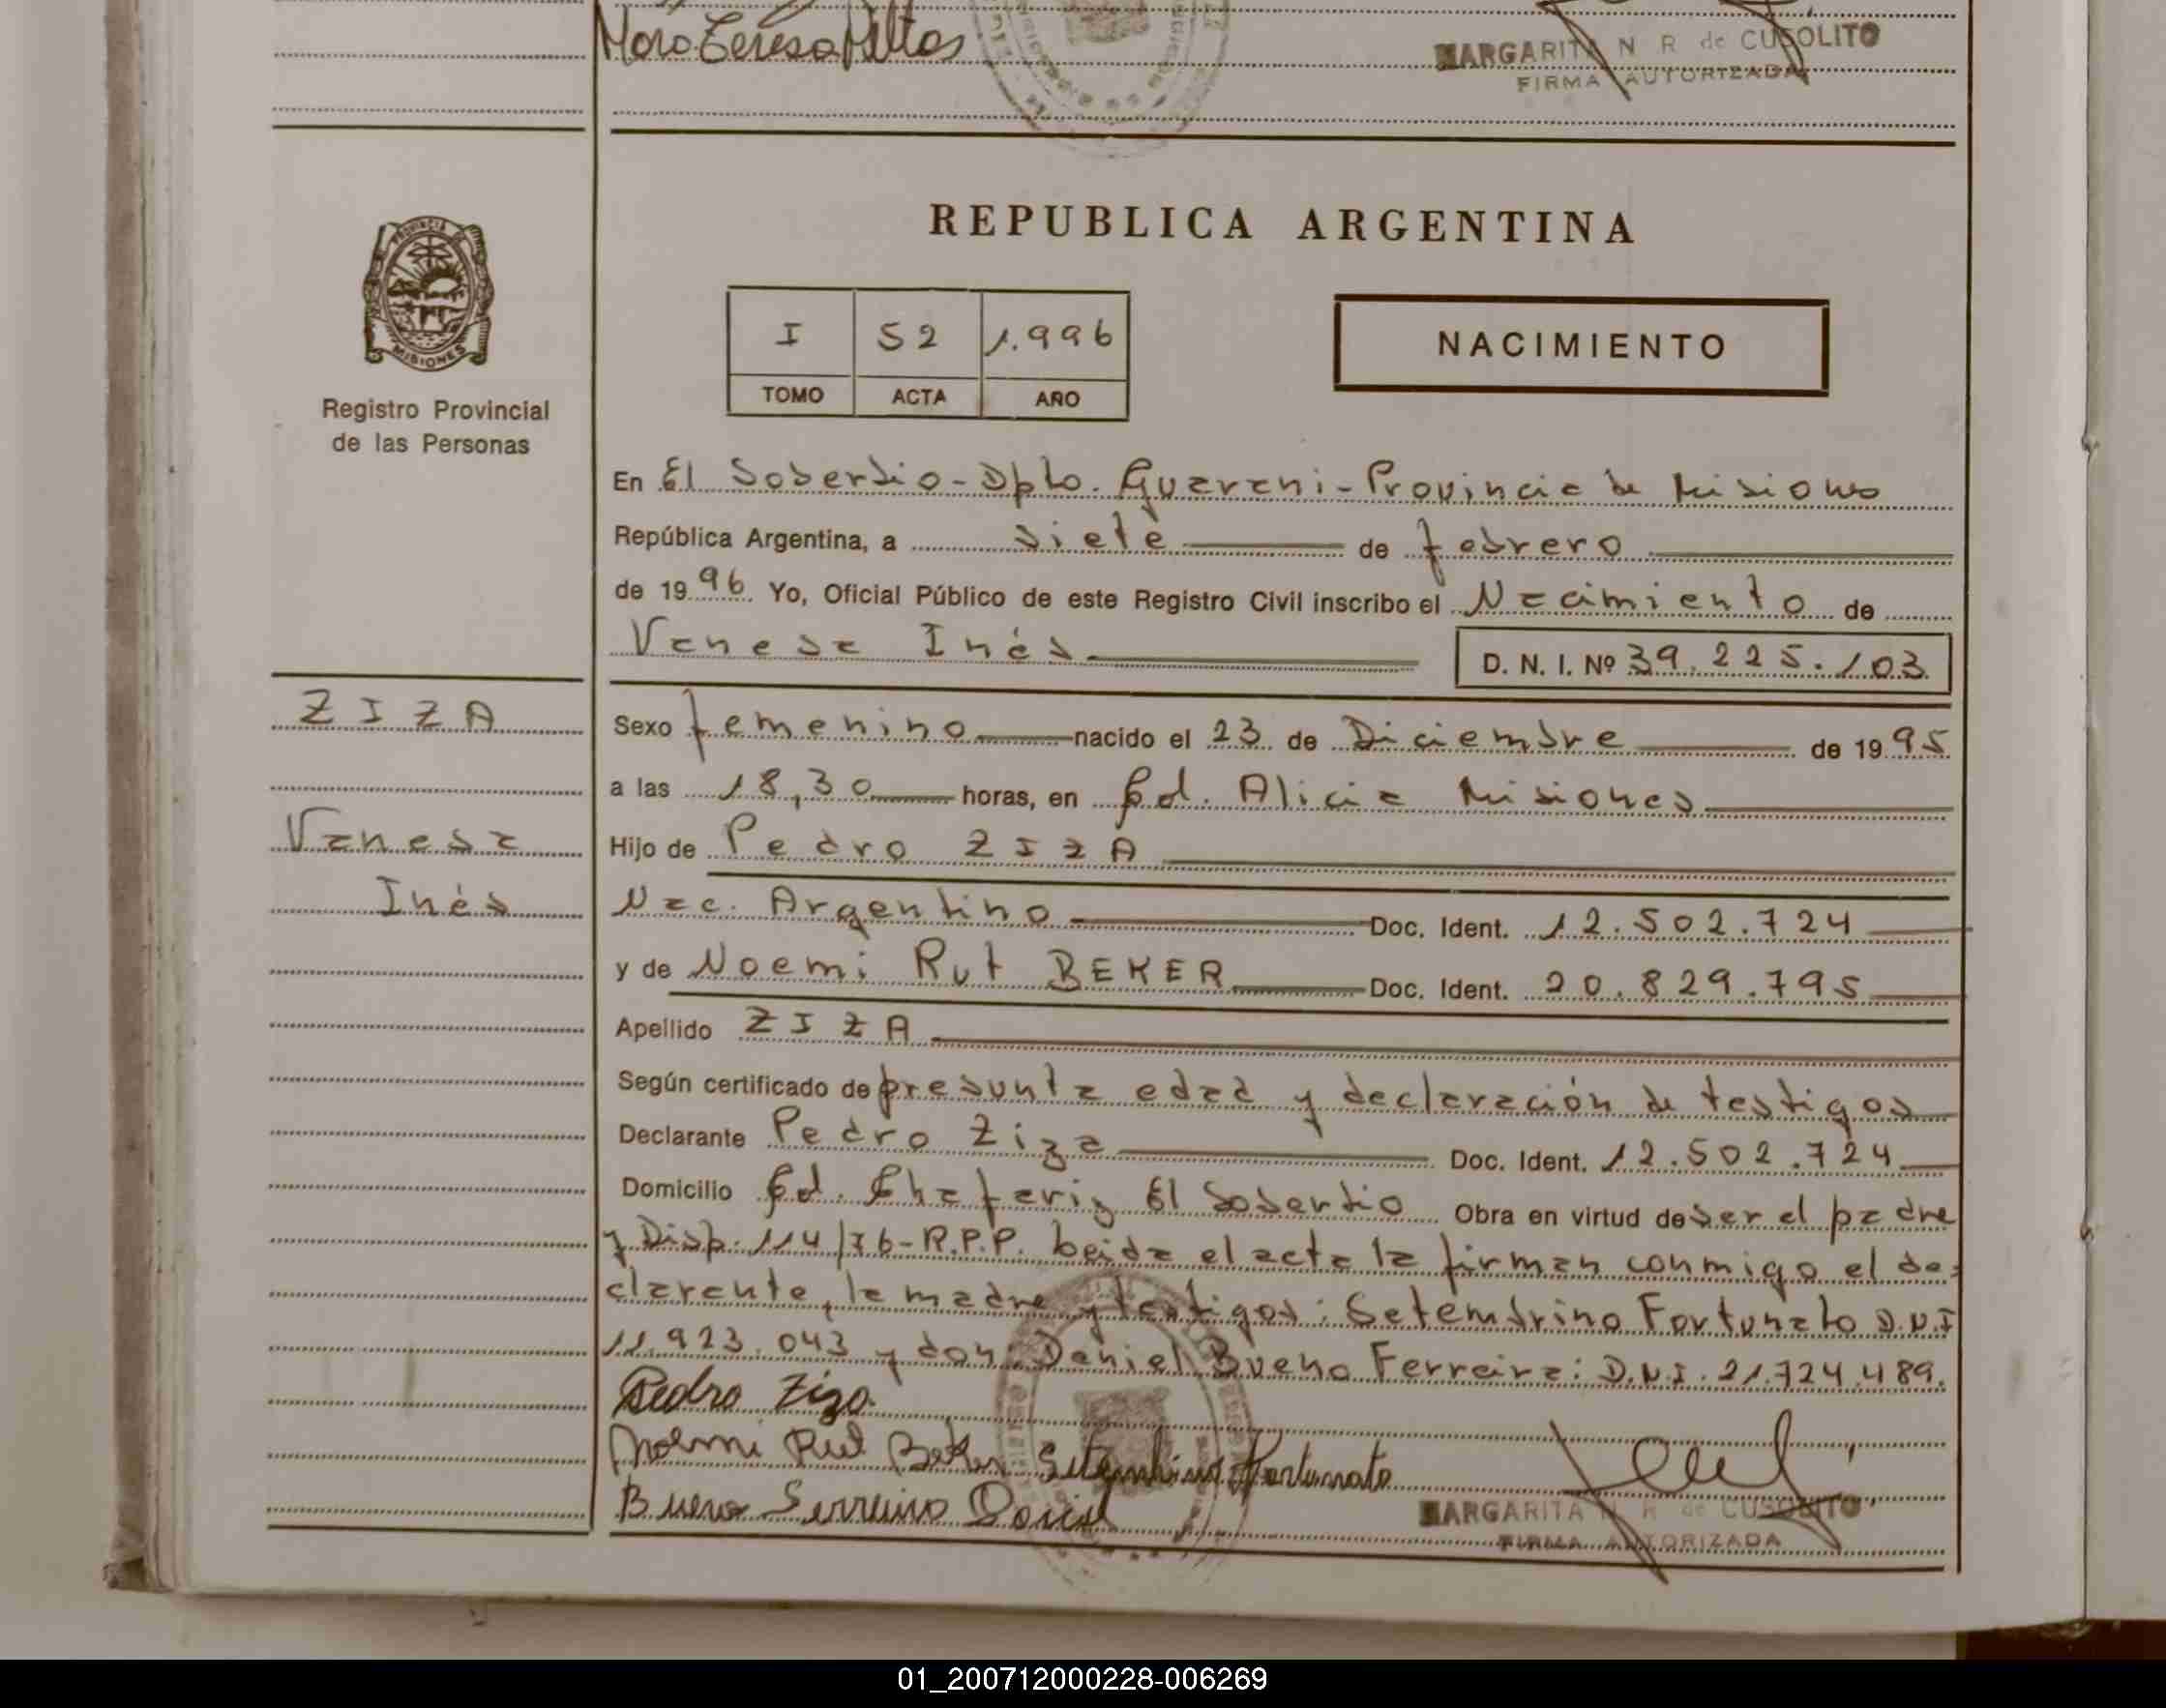 MARGARITA N R de CUSOLITO
FIRMA AUTORIZADA
REPUBLICA ARGENTINA
PROVINCIA DE
MISIONES
I 52 1.996
TOMO ACTA AÑO
NACIMIENTO
Registro Provincial
de las Personas
En El Soberbio - Dpto. Guarani - Provincia de Misiones
República Argentina, a siete de febrero
de 1996 Yo, Oficial Público de este Registro Civil inscribo el Nacimiento de
Vanesa Inés D. N. I. Nº 39.225.103
ZIZA
Vanesa
Inés
Sexo femenino nacido el 23 de Diciembre de 1995
a las 18,30 horas, en Cd. Alicia Misiones
Hijo de Pedro ZIZA
Nac. Argentino Doc. Ident. 12.502.724
y de Noemi Rut BEKER Doc. Ident. 20.829.795
Apellido ZIZA
Según certificado de presunta edad y declaración de testigos
Declarante Pedro Ziza Doc. Ident. 12.502.724
Domicilio Cd. Chafariz El Soberbio Obra en virtud de ser el padre
y Disp. 114/76-R.P.P. leida el acta la firman conmigo el de=
clarante, la madre y testigos: Setembrino Fortunato D.N.I
11.923.043 y don: Daniel Bueno Ferreira: D.N.I. 21.724.489.
Pedro Ziza
Noemi Rut Beker Setembrino Fortunato
Bueno Ferreira Daniel
MARGARITA N R de CUSOLITO
FIRMA AUTORIZADA
01_200712000228-006269